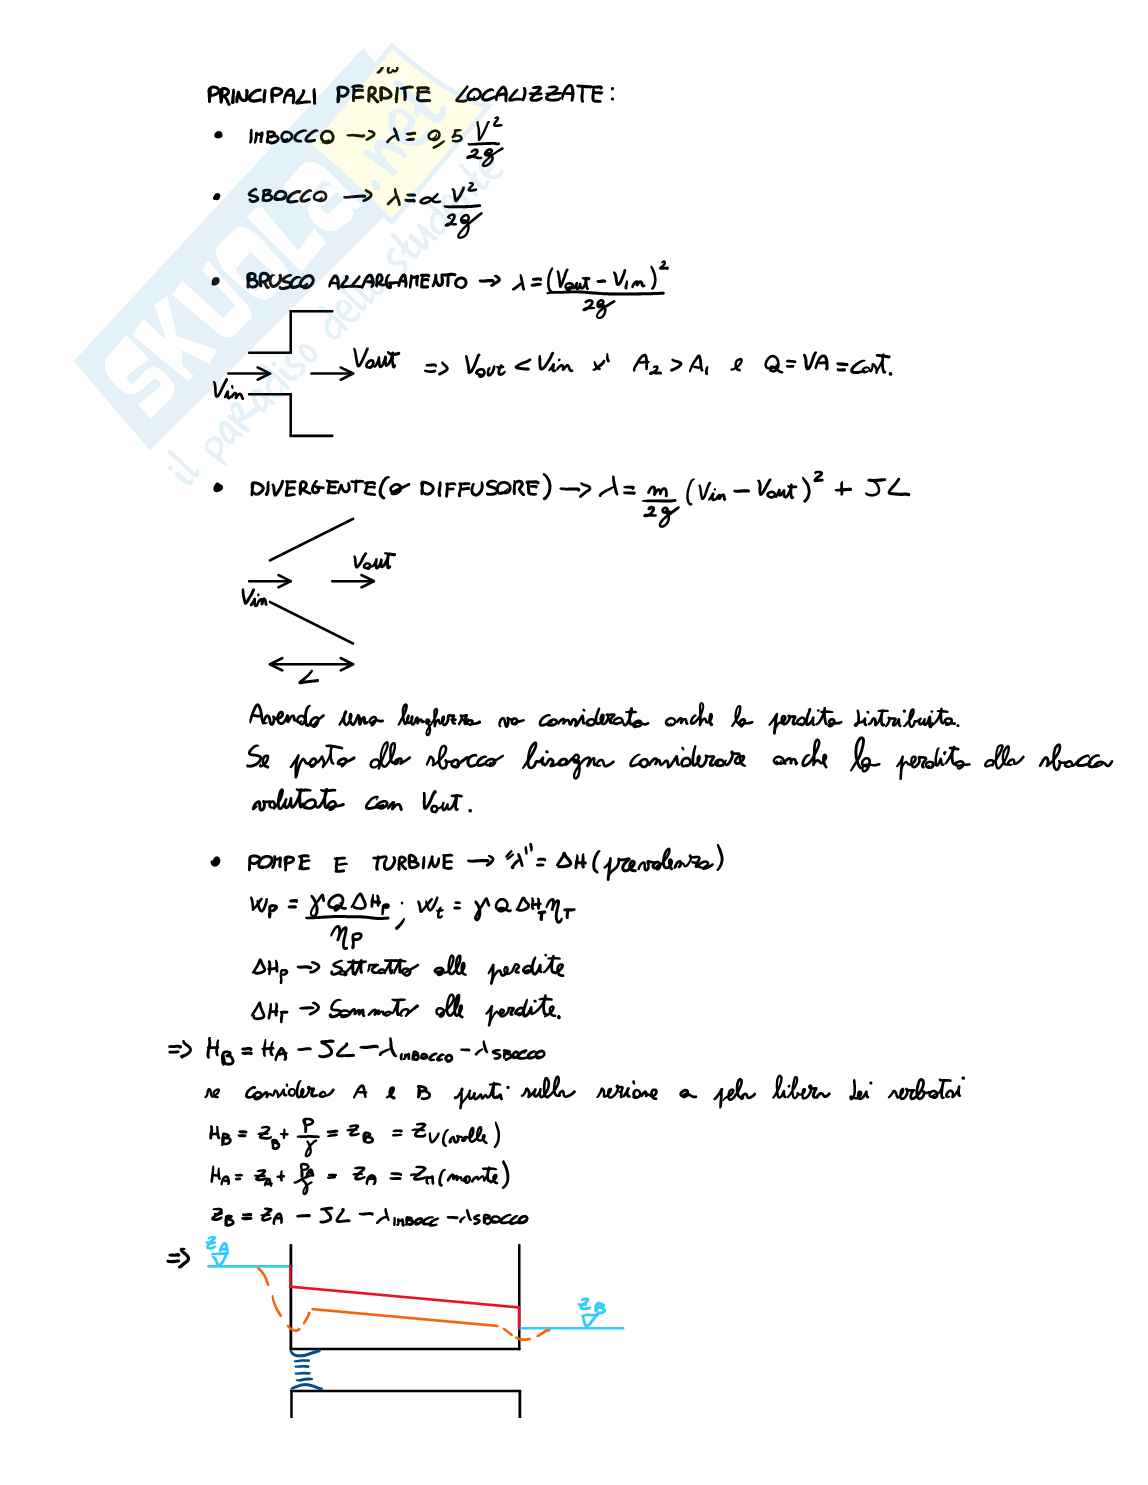 PRINCIPALI PERDITE LOCALIZZATE:
• IMBOCCO → λ = 0,5 V²/2g
• SBOCCO → λ = α V²/2g
• BRUSCO ALLARGAMENTO → λ = (Vout - Vin)²/2g
Vin Vout => Vout < Vin x' A₂ > A₁ e Q = VA = cost.
• DIVERGENTE (o DIFFUSORE) → λ = m/2g (Vin - Vout)² + JL
Vout
Vin
L
Avendo una lunghezza va considerata anche la perdita distribuita.
Se posto allo sbocco bisogna considerare anche la perdita allo sbocco
valutata con Vout.
• POMPE E TURBINE → "λ" = ΔH (prevalenza)
Wp = γ Q ΔHp / ηp ; Wt = γ Q ΔHT ηT
ΔHp → Sottratto alle perdite
ΔHT → Sommato alle perdite.
=> HB = HA - JL - λIMBOCCO - λSBOCCO
se considero A e B punti sulla sezione a pelo libero dei serbatoi
HB = ZB + P/γ = ZB = ZV (valle)
HA = ZA + PA/γ = ZA = ZM (monte)
ZB = ZA - JL - λIMBOCC - λSBOCCO
=> ZA
ZB
SKUOLA.net
il paradiso dello studente